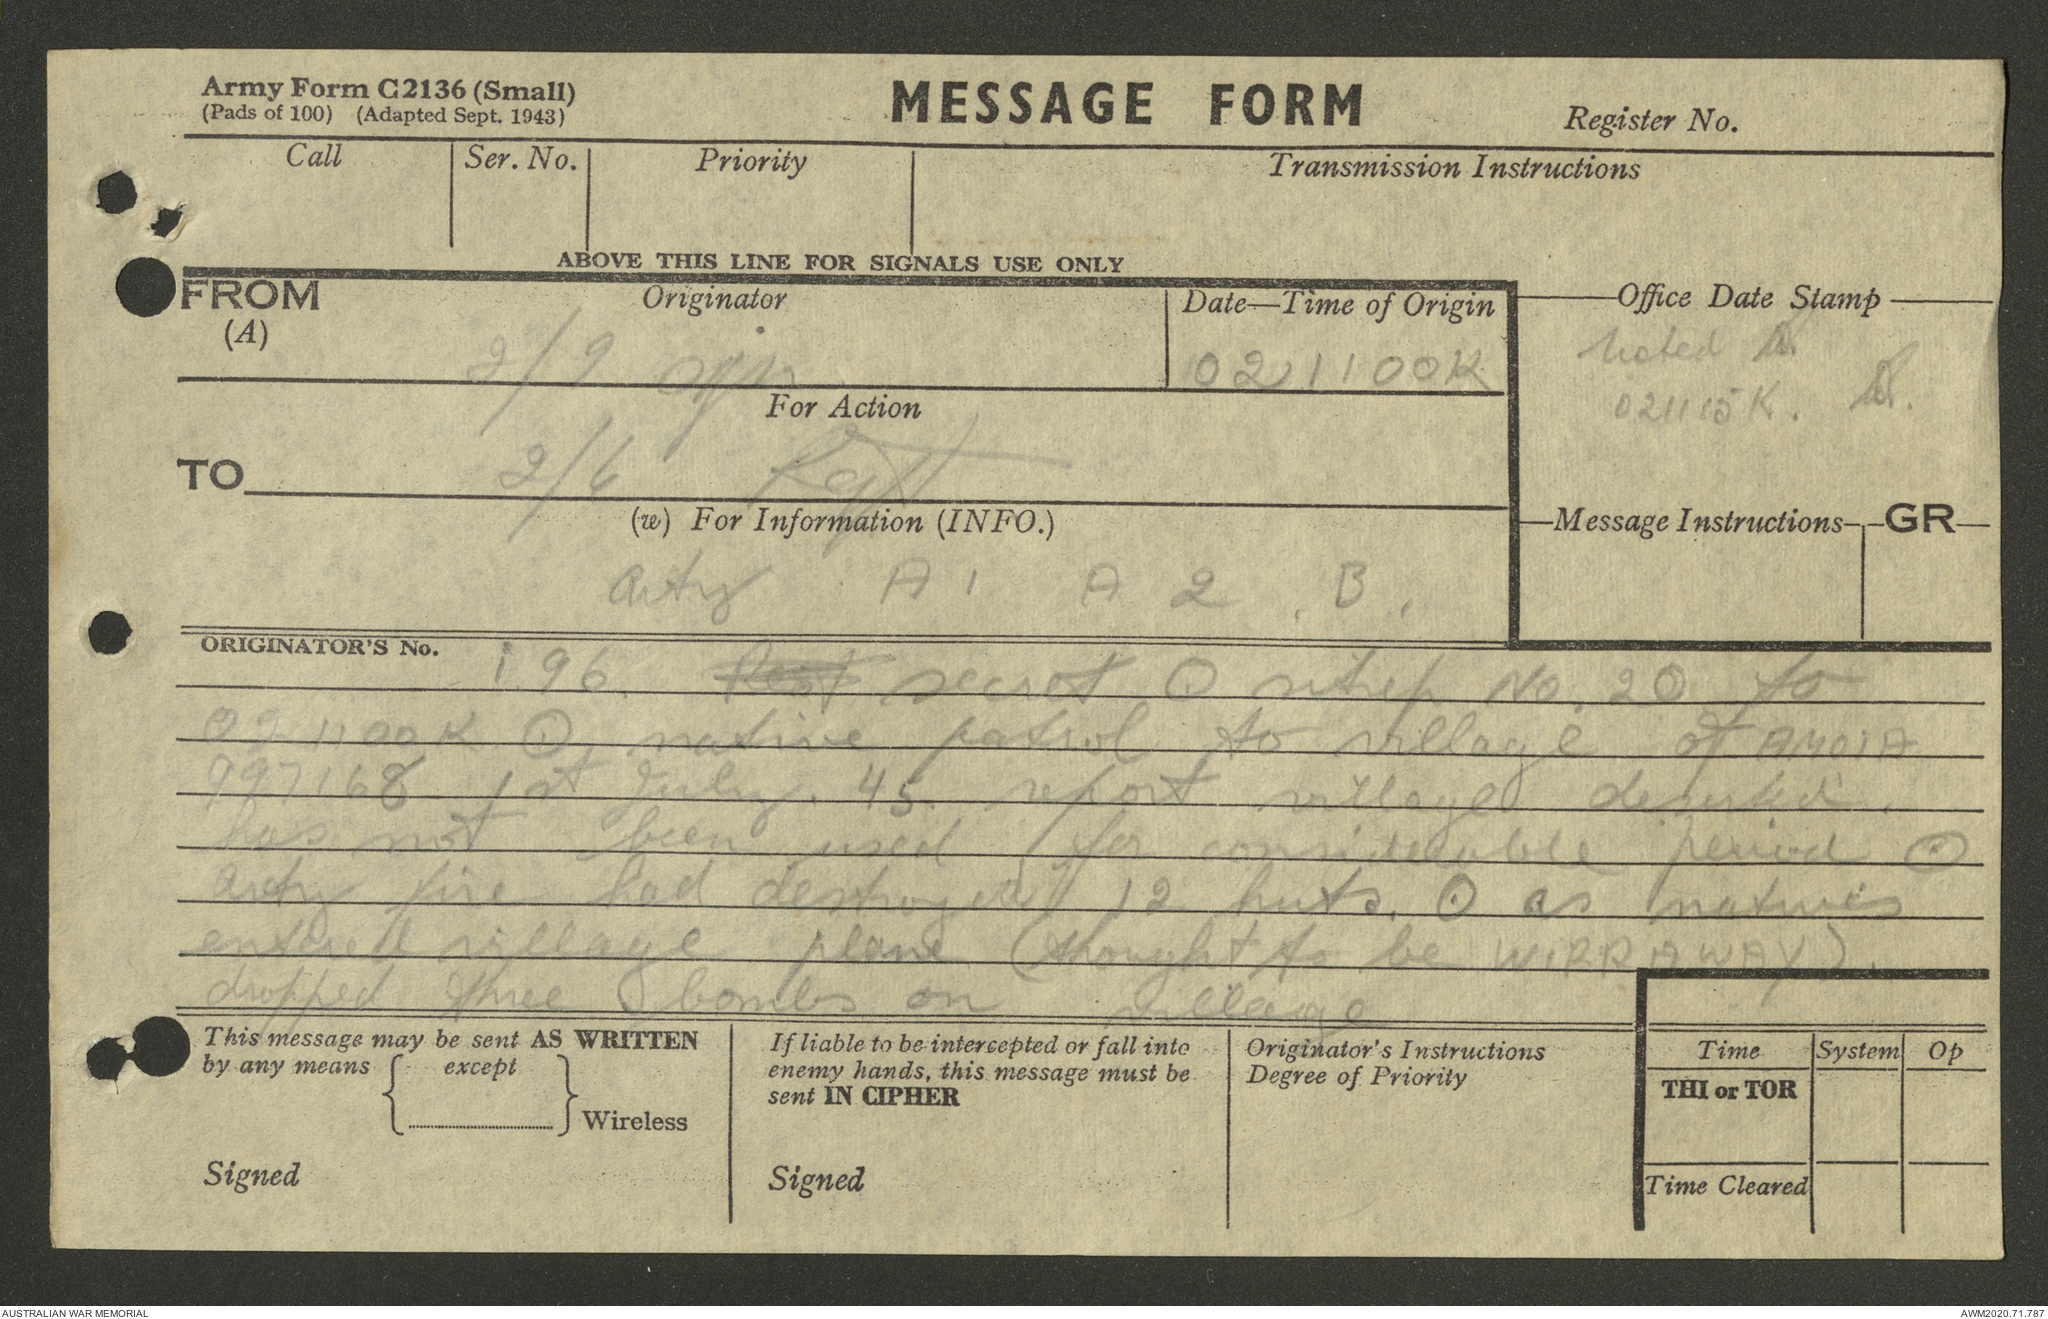 Army Form C2136 (Small)
(Pads of 100) (Adapted Sept. 1943)
MESSAGE FORM
Register No.
Call
Ser. No.
Priority
Transmission Instructions
ABOVE THIS LINE FOR SIGNALS USE ONLY
FROM
(A)
Originator
2/9
Date—Time of Origin
021100K
Office Date Stamp
Noted
021115K.
For Action
TO
2/6
(w) For Information (INFO.)
Arty A1 A2 . B.
Message Instructions
GR
ORIGINATOR'S No.
196. secret ⊙ sitrep No. 20 to
021100K ⊙ native patrol to village of AMOIA
997168 1st July. 45. report village deserted.
has not been used for considerable period ⊙
Arty fire had destroyed 12 huts. ⊙ as natives
entered village plane (thought to be WIRRAWAY).
dropped three bombs on village
This message may be sent AS WRITTEN
by any means except
Wireless
Signed
If liable to be intercepted or fall into
enemy hands, this message must be
sent IN CIPHER
Signed
Originator's Instructions
Degree of Priority
Time
System
Op
THI or TOR
Time Cleared
AUSTRALIAN WAR MEMORIAL
AWM2020.71.787